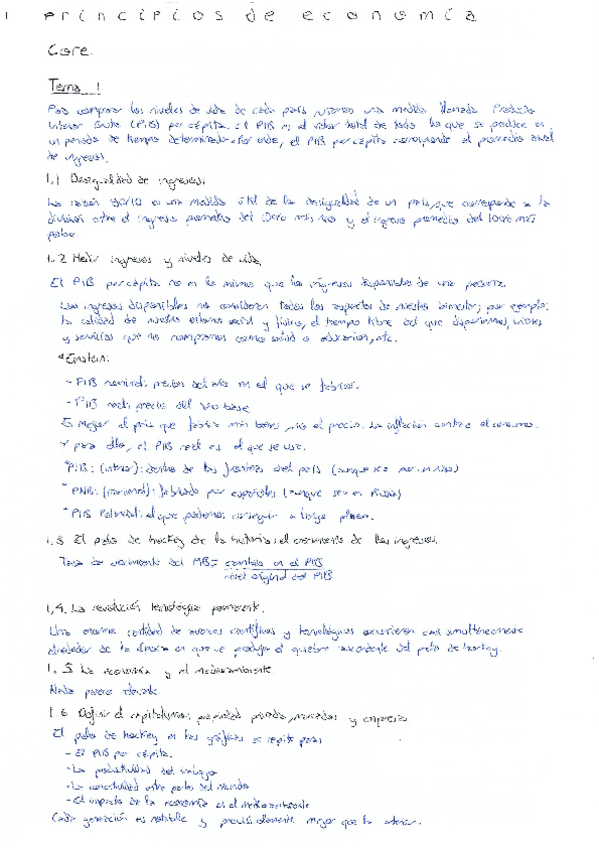 1 Principios de economía
Core.
Tema 1
Para comparar los niveles de vida de cada país, usamos una medida llamada Producto
Interior Bruto (PIB) per cápita. El PIB es el valor total de todo lo que se produce en
un periodo de tiempo determinado. Por ende, el PIB per cápita corresponde al promedio anual
de ingresos.
1.1 Desigualdad de ingresos.
La razón 90/10 es una medida útil de la desigualdad de un país, que corresponde a la
división entre el ingreso promedio del 10% más rico y el ingreso promedio del 10% más
pobre
1.2 Medir ingresos y niveles de vida
El PIB per cápita no es lo mismo que los ingresos disponibles de una persona.
Los ingresos disponibles no consideran todos los aspectos de nuestro bienestar; por ejemplo:
la calidad de nuestro entorno social y físico, el tiempo libre del que disponemos, bienes
y servicios que no compramos como salud o educación, etc.
*Einstein:
- PIB nominal: precios del año en el que se fabrica.
- PIB real: precio del año base
Es mejor el país que fabrica más bienes, no el precio. La inflación contra el consumo.
Y para ello, el PIB real es el que se usa.
*PIB: (interior): dentro de las fronteras del país (aunque sea por)
*PNB: (nacional): fabricado por españoles (aunque sea en Rusia)
*PIB Potencial: el que podemos conseguir a largo plazo.
1.3 El palo de hockey de la historia: el crecimiento de los ingresos.
Tasa de crecimiento del PIB = cambio en el PIB
nivel original del PIB
1.4. La revolución tecnológica permanente.
Una enorme cantidad de avances científicos y tecnológicos ocurrieron casi simultáneamente
alrededor de la época en que se produjo el quiebre ascendente del palo de hockey.
1.5 La economía y el medioambiente
Nada parece relevante.
1.6 Definir el capitalismo: propiedad privada, mercados y empresas
El palo de hockey en los gráficos se repite para
- El PIB per cápita.
- La productividad del trabajo
- La conectividad entre partes del mundo
- El impacto de la economía en el medioambiente
Cada generación es notable y previsiblemente mejor que la anterior.